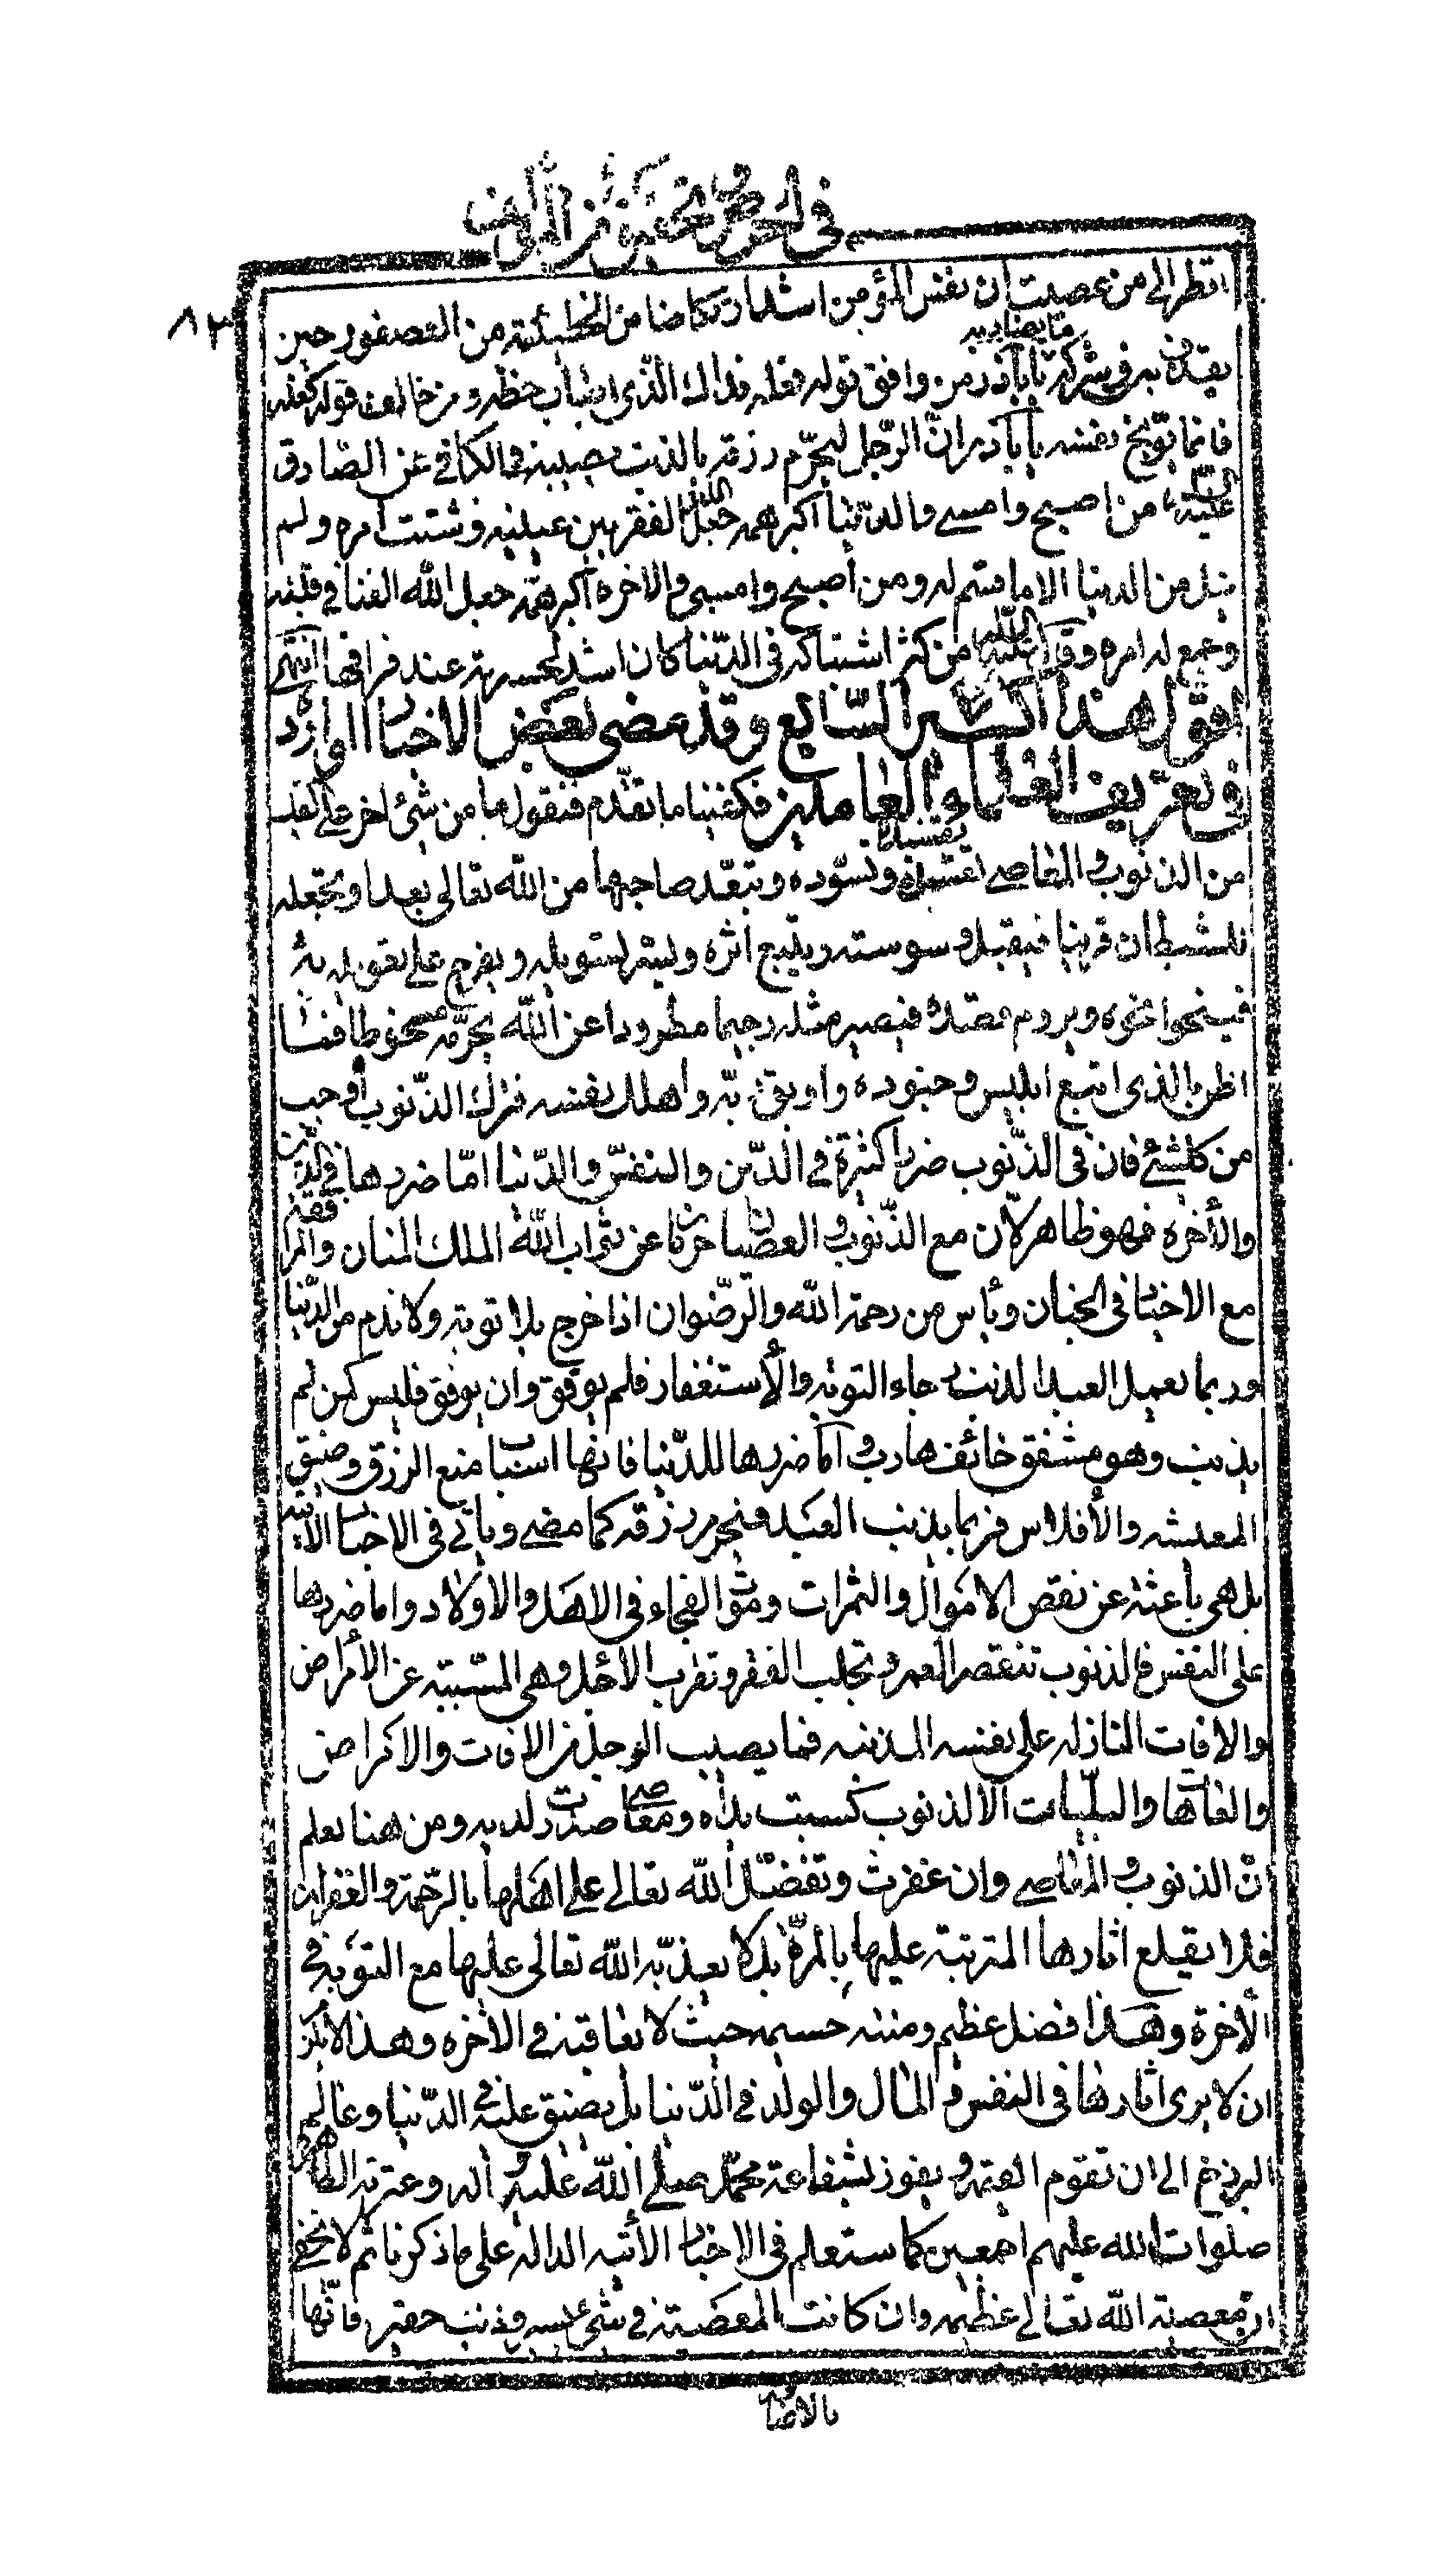 ٨٢
انظر الى من عصيت ان نفس المؤمن اشد ارتكاضا من الخطيئة من العصفور حين
يقذف به فى شركه يا باذر من وافق قوله فعله فذاك الذى اصاب حظه ومن خالف قوله فعله
فانما توبخ نفسه يا باذر ان الرجل ليحرم رزقه بالذنب يصيبه فى الكافى عن الصادق
عليه من اصبح وامسى والدنيا اكبر همه جعل الله الفقر بين عينيه وشتت امره ولم
ينل من الدنيا الا ما قسم له ومن اصبح وامسى والاخرة اكبر همه جعل الله الغنا فى قلبه
وجمع له امره وقال عليه من كثر اشتباكه فى الدنيا كان اشد لحسرته عند فراقها انتهى
اقول هذا السر السابع وقد مضى بعض الاخبار الواردة
فى تعريف العلماء العاملين فكفينا ما تقدم فنقول ما من شئ اضر على القلب
من الذنوب والمعاصى تقسيه وتسوده وتبعد صاحبها من الله تعالى بعدا ويجعله
للشيطان قرينا فيقبل وسوسته ويتبع اثره ويسر لتسويله ويفرح على تقويله به
فينحوا نحوه ويروم قصده فيصير مثله رجيما مطرودا عن الله بجرمه مسخوطا فما
اظن بالذى اتبع ابليس وجنوده واوبق به واهلك نفسه فترك الذنوب اوجب
من كلشئ فان فى الذنوب ضررا كثيرة فى الدين والنفس والدنيا اما ضررها فى الدين
والاخرة فهو ظاهر لان مع الذنوب والعصيان حرمانا عن ثواب الله الملك المنان والمرافقة
مع الاخيار فى الجنان وياس من رحمة الله والرضوان اذا خرج بلا توبة ولا ندم من الدنيا
وربما يعمل العبد الذنب رجاء التوبة والاستغفار فلم يوفق وان يوفق فليس كمن لم
يذنب وهو مشفق خائف هارب واما ضررها للدنيا فانها اسباب منع الرزق وضيق
المعيشه والافلاس فربما يذنب العبد فيحرم رزقه كما مضى وياتى فى الاخبار الاتيه
بل هى باعثة عن نقص الاموال والثمرات وموت الفجاء فى الاهل والاولاد واما ضررها
على النفس فالذنوب تنقص العمر وتجلب الفقر وتقرب الاجل وهى المسببه عن الامراض
والافات النازله على نفسه المذنبه فما يصيب الرجل من الافات والامراض
والعاهات والبليات الا لذنوب كسبت يداه ومعاصى صدرت لديه ومن هنا يعلم
ان الذنوب والمعاصى وان غفرت وتفضل الله تعالى على اهلها بالرحمة والغفران
فلا يقلع اثارها المترتبة عليها بالمرة بل لا يعذبه الله تعالى عليها مع التوبة فى
الاخرة وهذا فضل عظيم ومننه جسيمه حيث لا يعاقبه فى الاخره وهذا لا يلزم
ان لا يرى اثارها فى النفس والمال والولد فى الدنيا بل يضيق عليه فى الدنيا وعالم
البرزخ الى ان تقوم القيمة ويفوز بشفاعة محمد صلى الله عليه واله وعترته الطاهرين
صلوات الله عليهم اجمعين كما ستعلم فى الاخبار الاتيه الداله على ما ذكرنا ثم لا يخفى
ان معصية الله تعالى عظيمه وان كانت المعصية فى شئ يسير وذنب حقير فانها
بالاضا